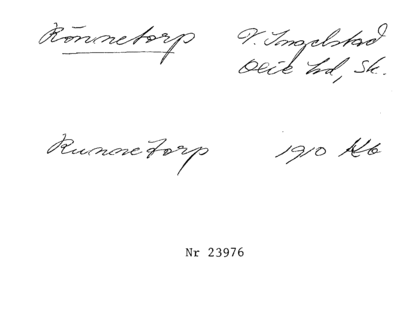 Rönnetorp V. Ingelstad
Oxie hd, Sk.
Runnetorp 1910 Kb
Nr 23976